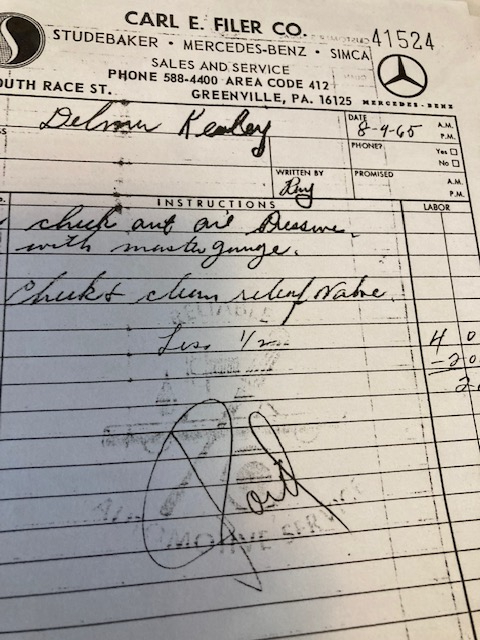 CARL E. FILER CO.
41524
STUDEBAKER • MERCEDES-BENZ • SIMCA
SALES AND SERVICE
PHONE 588-4400 AREA CODE 412
OUTH RACE ST.
GREENVILLE, PA. 16125
MERCEDES-BENZ
Delmer
DATE
8-4-65
A.M.
P.M.
PHONE?
Yes
No
WRITTEN BY
Ray
PROMISED
A.M.
P.M.
INSTRUCTIONS
LABOR
check out oil Pressure
with master gauge.
Check & clean relief Valve
RELIABLE
Less 1/2
4 0
-20
2
Paid
AUTOMOTIVE SERVICE